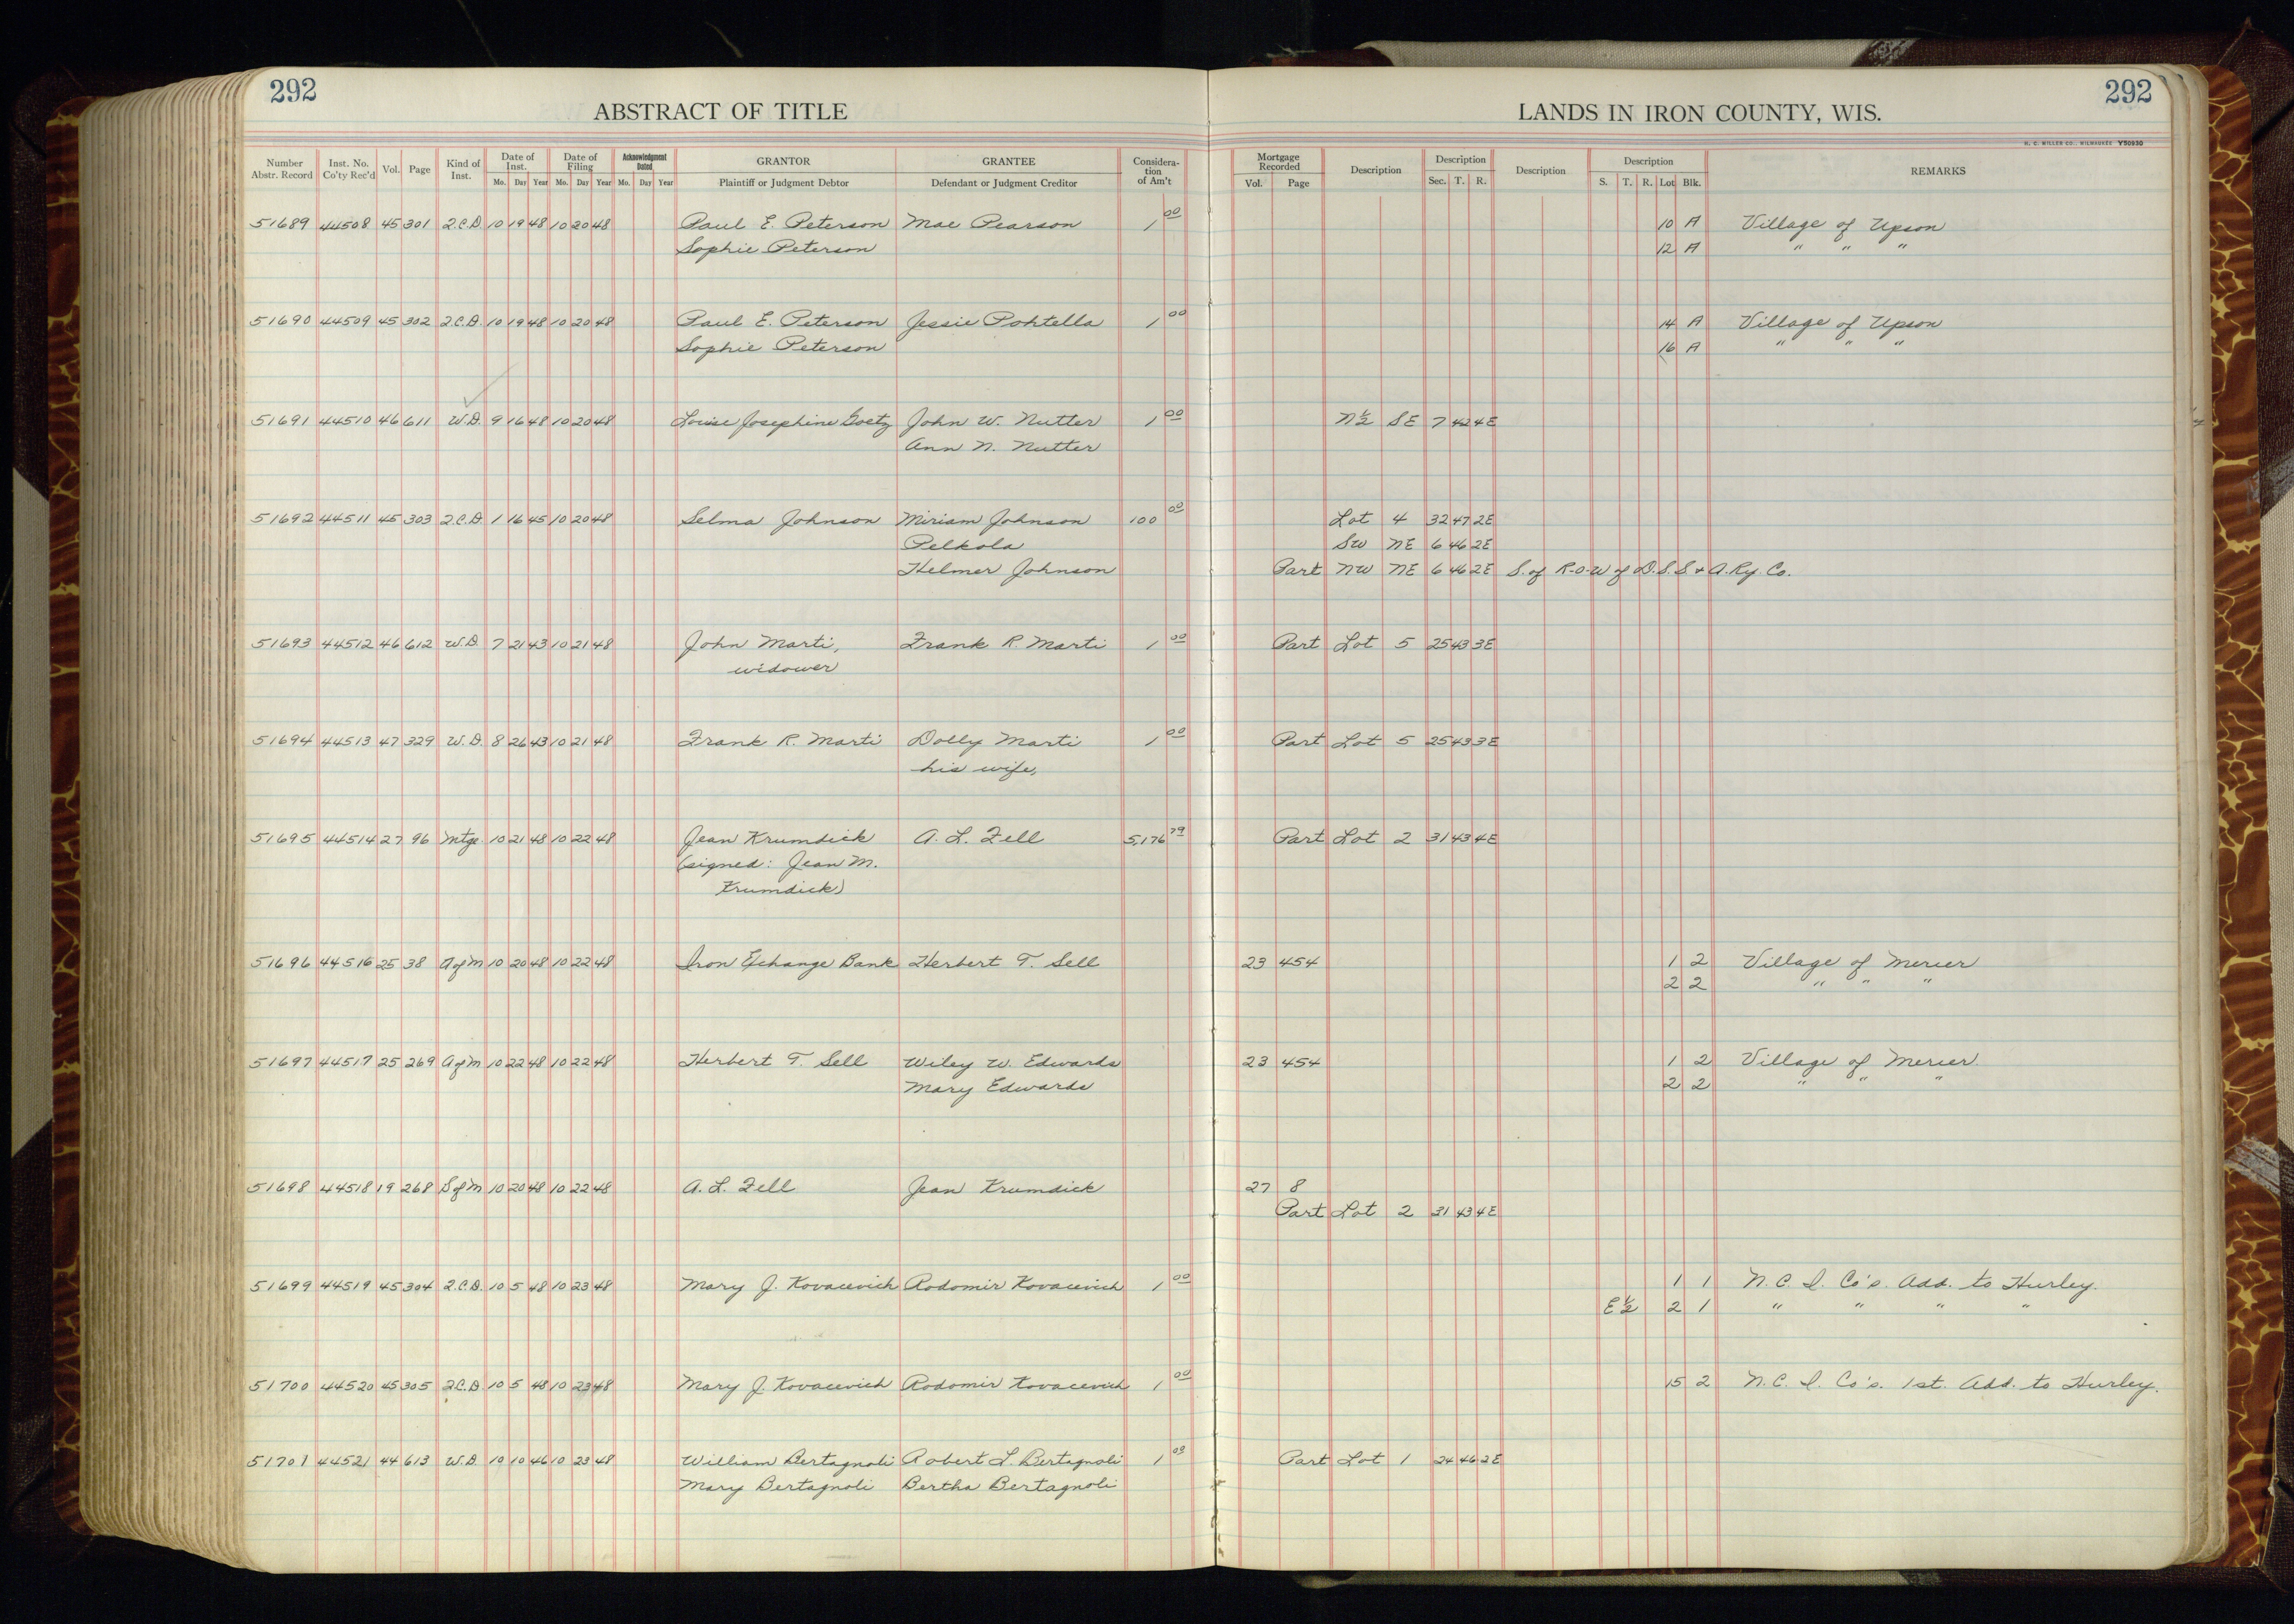 292
ABSTRACT OF TITLE
LANDS IN IRON COUNTY, WIS.
292
H. C. MILLER CO., MILWAUKEE Y50930
Number Abstr. Record Inst. No. Co'ty Rec'd Vol. Page Kind of Inst. Date of Inst. Mo. Day Year Date of Filing Mo. Day Year Acknowledgment Dated Mo. Day Year GRANTOR Plaintiff or Judgment Debtor GRANTEE Defendant or Judgment Creditor Considera-tion of Am't Mortgage Recorded Vol. Page Description Description Sec. T. R. Description Description S. T. R. Lot Blk. REMARKS
51689 44508 45 301 Q.C.D. 10 19 48 10 20 48 Paul E. Peterson Mae Pearson 1 00 10 A Village of Upson
Sophie Peterson 12 A " " "
51690 44509 45 302 Q.C.D. 10 19 48 10 20 48 Paul E. Peterson Jessie Pohtella 1 00 14 A Village of Upson
Sophie Peterson 16 A " " "
51691 44510 46 611 W.D. 9 16 48 10 20 48 Louise Josephine Goetz John W. Nutter 1 00 N½ SE 7 42 4E
Ann N. Nutter
51692 44511 45 303 Q.C.D. 1 16 45 10 20 48 Selma Johnson Miriam Johnson 100 00 Lot 4 32 47 2E
Pelkola SW NE 6 46 2E
Helmer Johnson Part NW NE 6 46 2E S. of R-O-W of D.S.S & A. Ry. Co.
51693 44512 46 612 W.D. 7 21 43 10 21 48 John Marti, Frank R. Marti 1 00 Part Lot 5 25 43 3E
widower
51694 44513 47 329 W.D. 8 26 43 10 21 48 Frank R. Marti Dolly Marti 1 00 Part Lot 5 25 43 3E
his wife,
51695 44514 27 96 Mtge. 10 21 48 10 22 48 Jean Krumdick A. L. Zell 5,176 79 Part Lot 2 31 43 4E
(signed: Jean M.
Krumdick)
51696 44516 25 38 A of M 10 20 48 10 22 48 Iron Exchange Bank Herbert T. Sell 23 454 1 2 Village of Mercer
2 2 " " "
51697 44517 25 269 A of M 10 22 48 10 22 48 Herbert T. Sell Wiley W. Edwards 23 454 1 2 Village of Mercer
Mary Edwards 2 2 " " "
51698 44518 19 268 S of M 10 20 48 10 22 48 A. L. Zell Jean Krumdick 27 8
Part Lot 2 31 43 4E
51699 44519 45 304 Q.C.D. 10 5 48 10 23 48 Mary J. Kovacevich Rodomir Kovacevich 1 00 1 1 N. C. I. Co's. Add. to Hurley.
E½ 2 1 " " " "
51700 44520 45 305 Q.C.D. 10 5 48 10 23 48 Mary J. Kovacevich Rodomir Kovacevich 1 00 15 2 N. C. I. Co's. 1st. Add. to Hurley.
51701 44521 44 613 W.D. 10 10 46 10 23 48 William Bertagnoli Robert L. Bertagnoli 1 00 Part Lot 1 24 46 2E
Mary Bertagnoli Bertha Bertagnoli